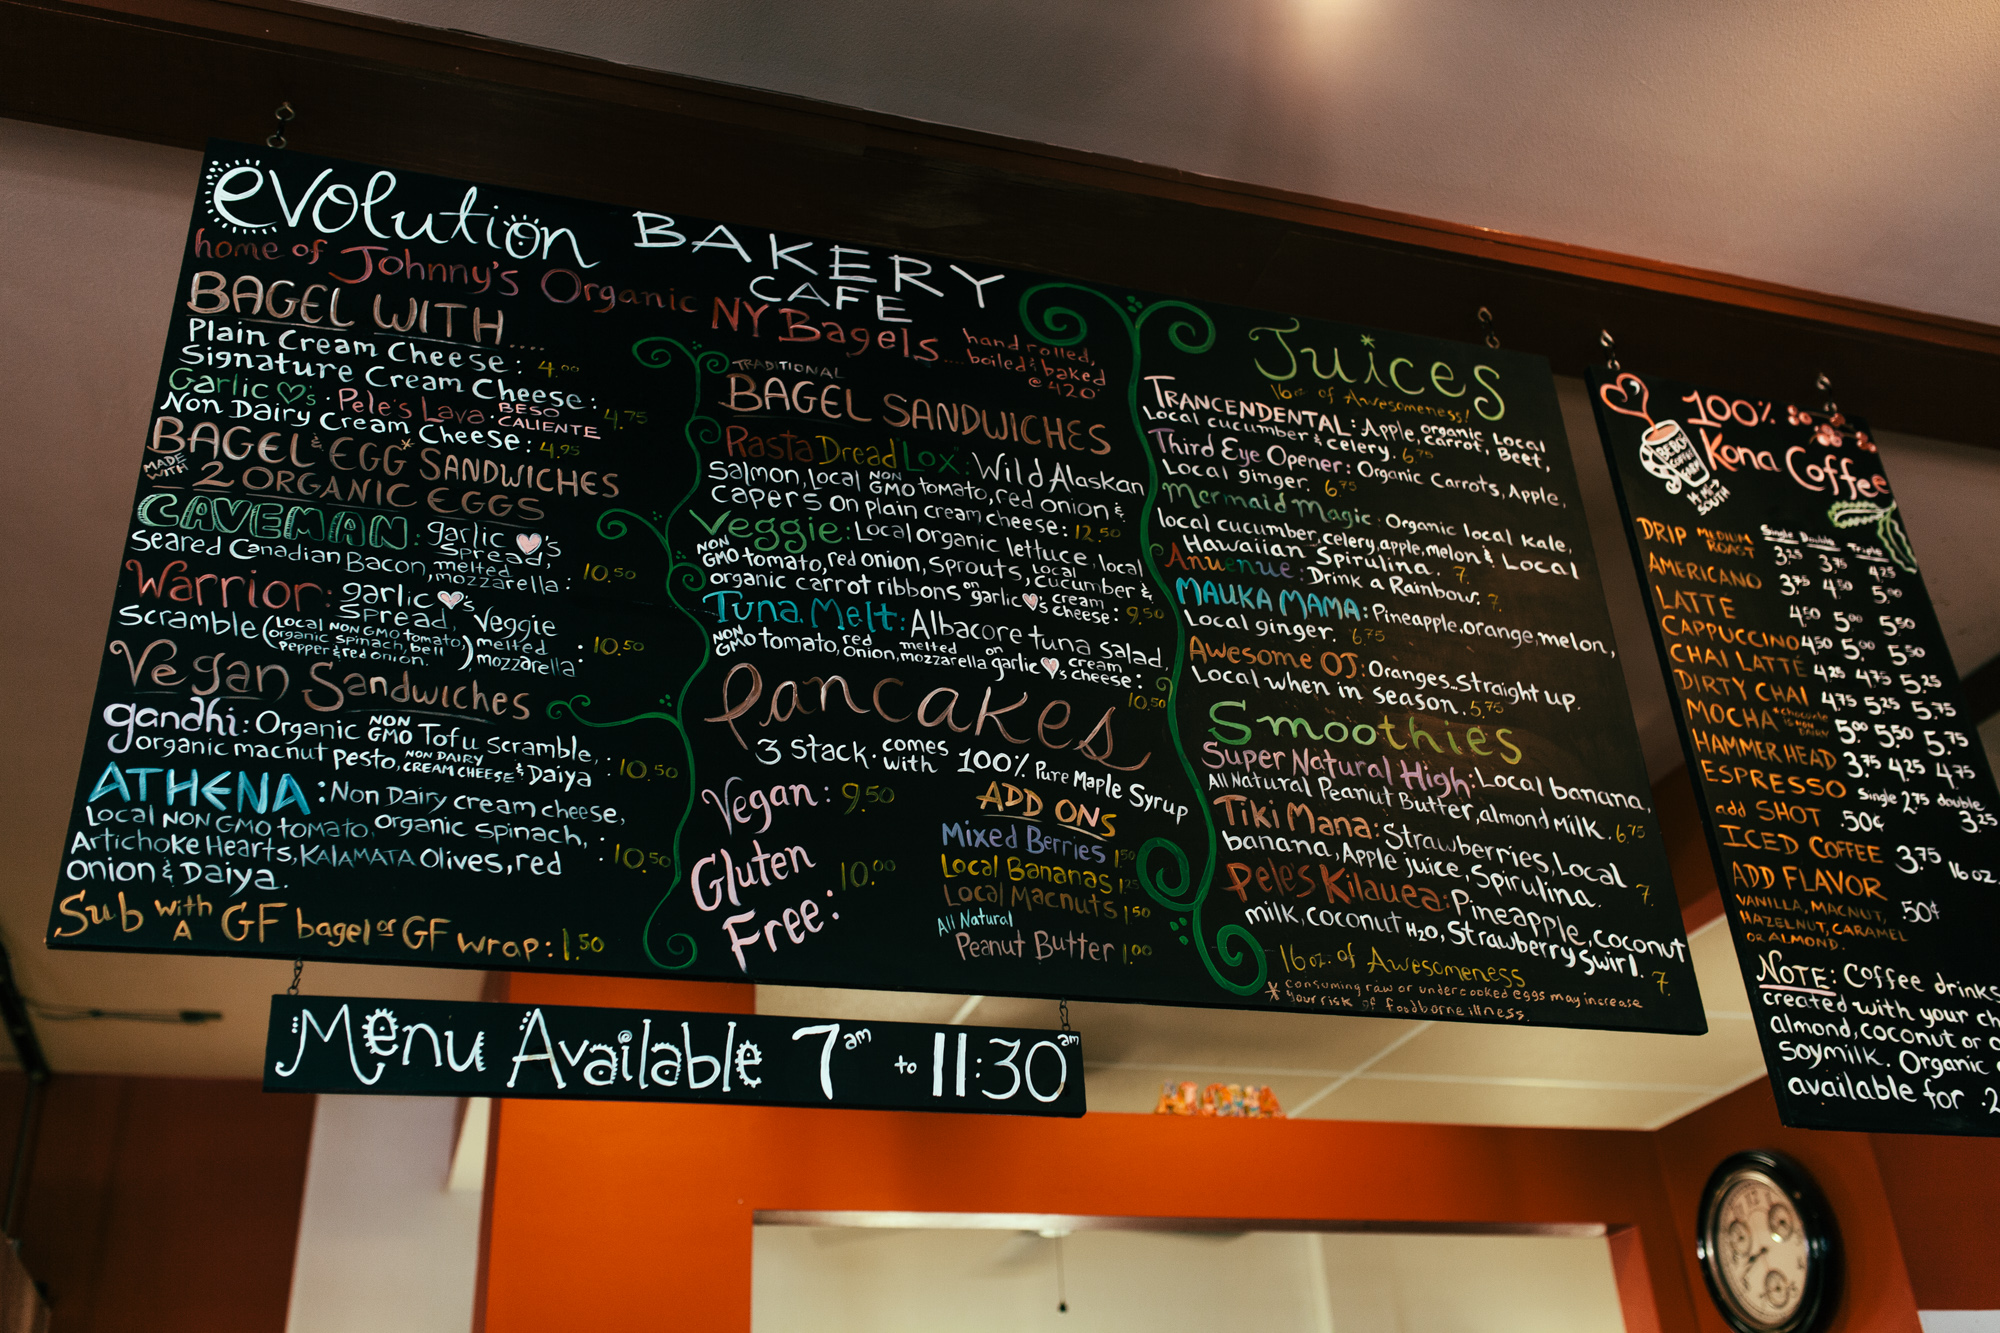 evolution BAKERY
CAFE
home of Johnny's Organic NY Bagels.... hand rolled,
boiled & baked
@ 420°
BAGEL WITH....
Plain Cream Cheese: 4.00
Signature Cream Cheese:
Garlic ♡'s · Pele's Lava: BESO CALIENTE 4.75
Non Dairy Cream Cheese: 4.95
BAGEL & EGG* SANDWICHES
MADE WITH 2 ORGANIC EGGS
CAVEMAN: garlic ♥'s spread,
Seared Canadian Bacon, melted mozzarella: 10.50
Warrior: garlic ♥'s spread, Veggie
Scramble (Local NON GMO tomato, organic spinach, bell pepper & red onion.) melted mozzarella: 10.50
Vegan Sandwiches
gandhi: Organic NON GMO Tofu scramble,
organic macnut pesto, NON DAIRY CREAM CHEESE & Daiya: 10.50
ATHENA: Non Dairy cream cheese,
Local NON GMO tomato, organic spinach,
Artichoke Hearts, KALAMATA Olives, red : 10.50
onion & Daiya.
Sub with A GF bagel or GF wrap: 1.50
TRADITIONAL
BAGEL SANDWICHES
Rasta Dread Lox: Wild Alaskan
Salmon, local NON GMO tomato, red onion &
capers on plain cream cheese: 12.50
Veggie: Local organic lettuce, local
NON GMO tomato, red onion, Sprouts, local cucumber &
organic carrot ribbons on garlic ♥'s cream cheese: 9.50
Tuna Melt: Albacore tuna salad,
NON GMO tomato, red onion, melted mozzarella on garlic ♥'s cream cheese:
10.50
Pancakes
3 Stack · comes with 100% Pure Maple Syrup
Vegan: 9.50
Gluten
Free: 10.00
ADD ONS
Mixed Berries 1.50
Local Bananas 1.25
Local Macnuts 1.50
All Natural
Peanut Butter 1.00
Juices
16oz of Awesomeness!
TRANCENDENTAL: Apple, organic carrot, Local Beet,
Local cucumber & celery. 6.75
Third Eye Opener: Organic Carrots, Apple,
Local ginger. 6.75
Mermaid Magic: Organic local Kale,
local cucumber, celery, apple, melon & Local
Hawaiian Spirulina. 7.
Anuenue: Drink a Rainbow. 7.
MAUKA MAMA: Pineapple, orange, melon,
Local ginger. 6.75
Awesome OJ: Oranges...Straight up.
Local when in season. 5.75
Smoothies
Super Natural High: Local banana,
All Natural Peanut Butter, almond Milk. 6.75
Tiki Mana: Strawberries, Local
banana, Apple juice, Spirulina. 7.
Pele's Kilauea: Pineapple, coconut
milk, coconut H2O, Strawberry Swirl. 7.
16oz. of Awesomeness
* consuming raw or undercooked eggs may increase
your risk of foodborne illness.
Menu Available 7am to 11:30am
100%
Kona Coffee
SOUTH
Single Double Triple
DRIP MEDIUM ROAST 3.25 3.75 4.25
AMERICANO 3.75 4.50 5.00
LATTE 4.50 5.00 5.50
CAPPUCCINO 4.50 5.00 5.50
CHAI LATTE 4.25 4.75 5.25
DIRTY CHAI 4.75 5.25 5.75
MOCHA 5.00 5.50 5.75
HAMMER HEAD 3.75 4.25 4.75
ESPRESSO Single 2.75 double 3.25
add SHOT .50¢
ICED COFFEE 3.75 16oz.
ADD FLAVOR .50¢
VANILLA, MACNUT,
HAZELNUT, CARAMEL
OR ALMOND.
NOTE: Coffee drinks
created with your
almond, coconut or
Soymilk. Organic
available for